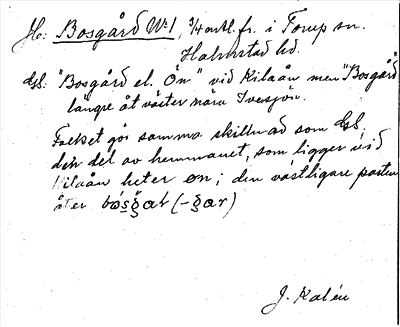 H: Bosgård Nr 1, 3/4 mtl. fr. i Torup sn.
Halmstad hd.
GS: "Bosgård el. Ön" vid Kilaån men "Bosgård"
längre åt väster nära Ivesjön.
Folket gör samma skillnad som GS,
den del av hemmanet, som ligger vid
Kilaån heter øn; den västligare parten
åter (-gar)
J. Kalén